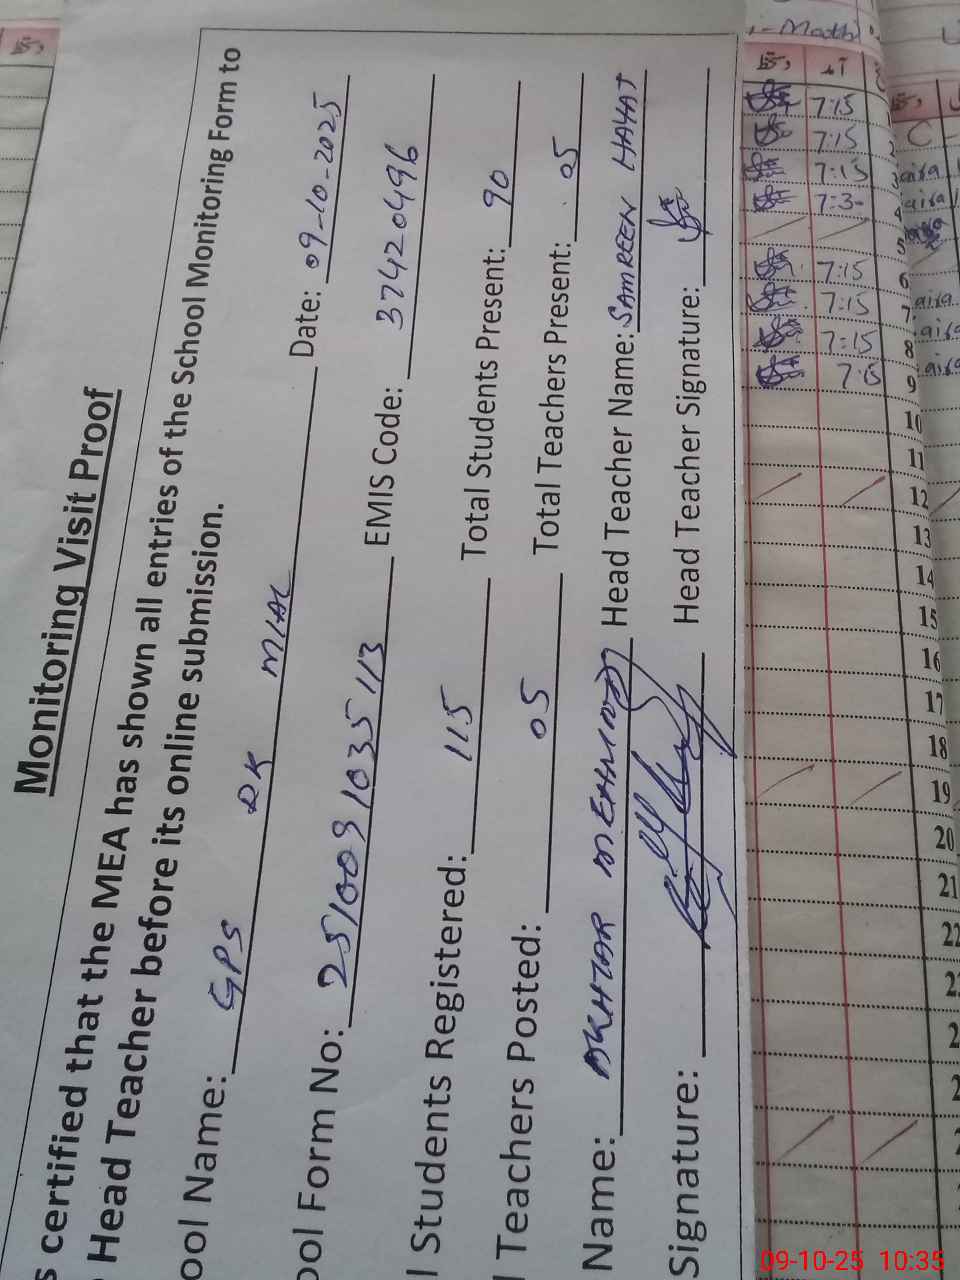 Monitoring Visit Proof
s certified that the MEA has shown all entries of the School Monitoring Form to
Head Teacher before its online submission.
ool Name: GPS DK MIAL Date: 09-10-2025
ool Form No: 251009 1035 113 EMIS Code: 37420496
l Students Registered: 115 Total Students Present: 90
l Teachers Posted: 05 Total Teachers Present: 05
Name: AKHTAR MEHMOOD Head Teacher Name: SAMREEN HAYAT
Signature: Head Teacher Signature:
7:15
7:15
7:15 3
7:3- 4
5
7:15 6
7:15 7
7:15 8
7:15 9
10
11
12
13
14
15
16
17
18
19
20
21
22
09-10-25 10:35